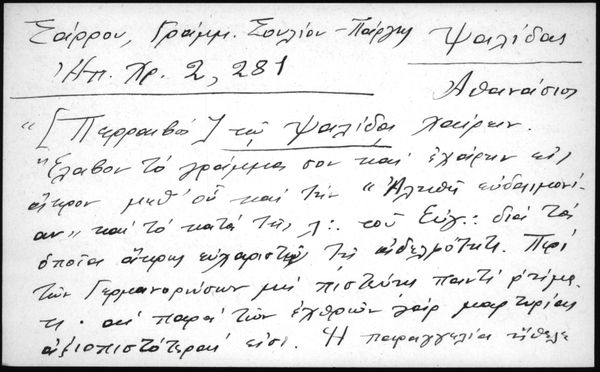 Σάρρου, Γράμμ. Σουλίου - Πάργης
Ψαλίδας
Ἠπ. Χρ. 2, 281
Ἀθανάσιος
"[Περραιβός] τῷ Ψαλίδᾳ χαίρειν.
"Ἔλαβον τὸ γράμμα σου καὶ ἐχάρην εἰς
ἄκρον μεθ' οὗ καὶ τὴν "Ἀληθῆ εὐδαιμονί-
αν" καὶ τὸ κατὰ τῆς λ:. τοῦ Εὐγ:. διὰ τὰ
ὁποῖα ἄκρως εὐχαριστῶ τῇ ἀδελφότητι. Περὶ
τῶν Γερμανορώσων μὴ πιστεύῃς παντὶ ῥήμα-
τι· αἱ παρὰ τῶν ἐχθρῶν γὰρ μαρτυρίαι
ἀξιοπιστότεραι εἰσι. Ἡ παραγγελία